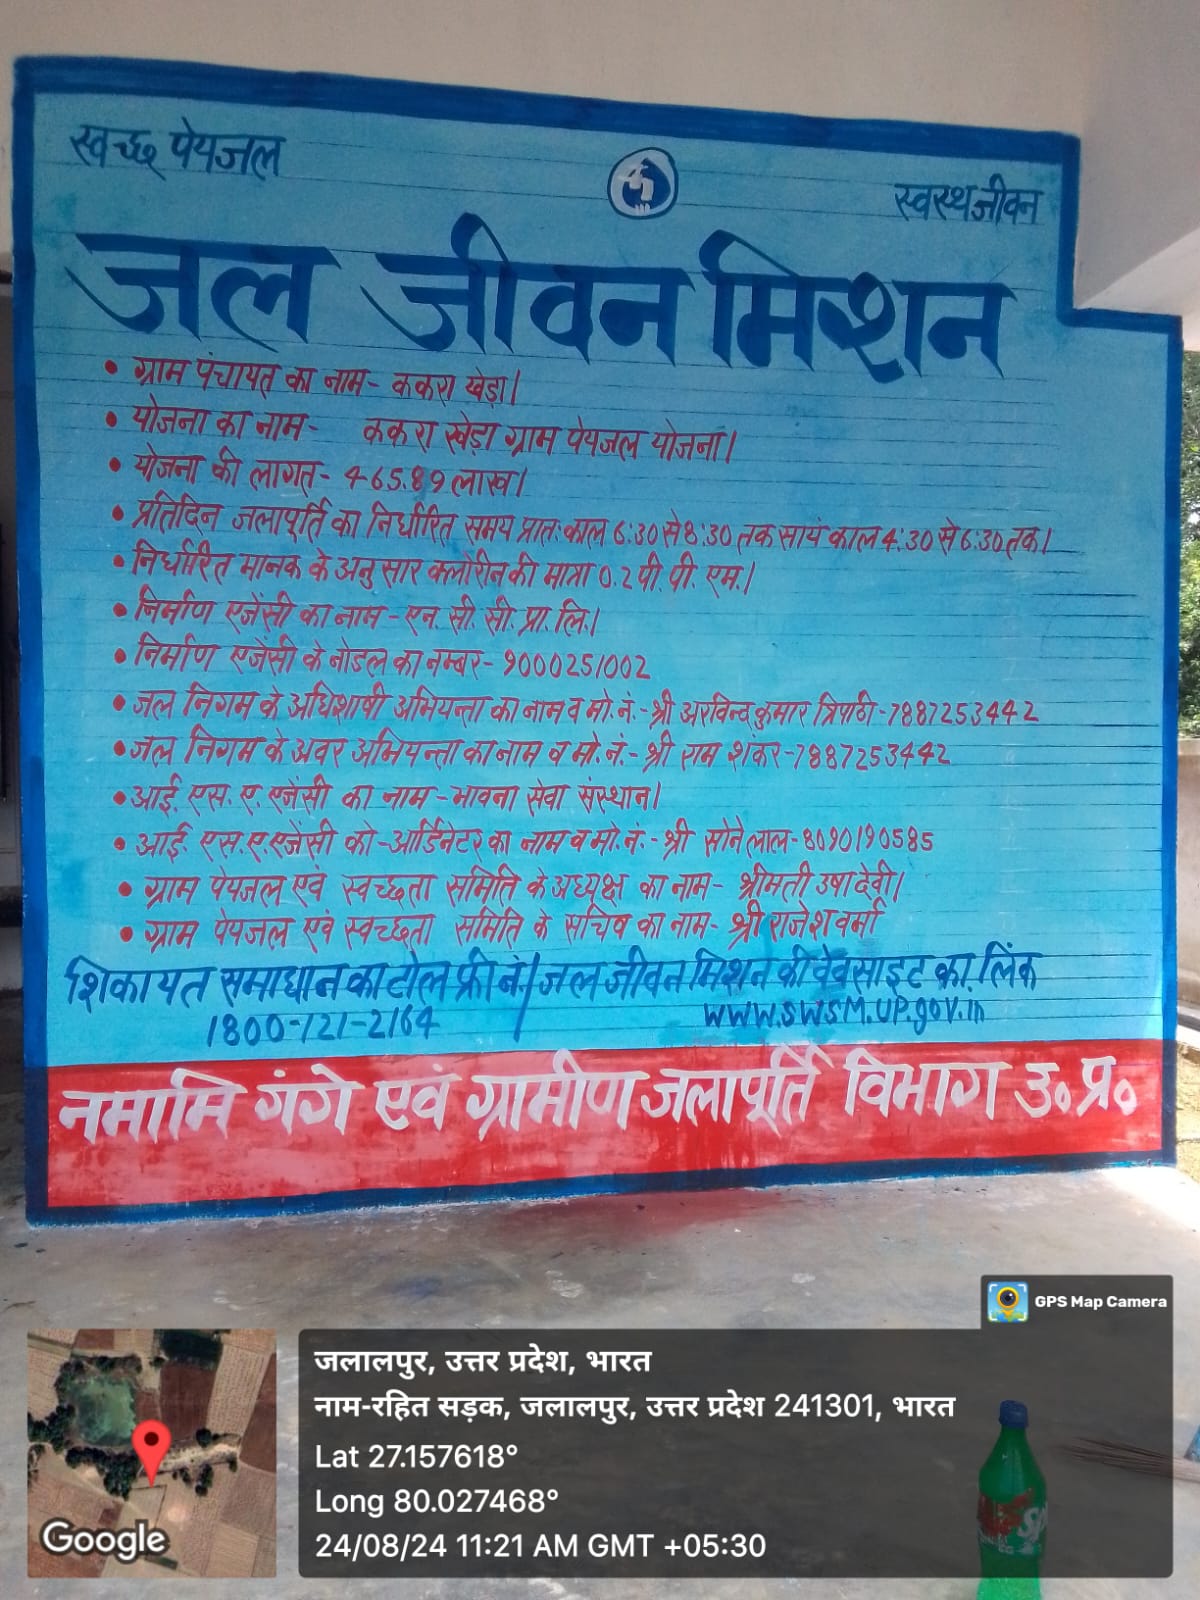 स्वच्छ पेयजल
स्वस्थ जीवन
जल जीवन मिशन
• ग्राम पंचायत का नाम- ककरा खेड़ा।
• योजना का नाम- ककरा खेड़ा ग्राम पेयजल योजना।
• योजना की लागत- 465.89 लाख।
• प्रतिदिन जलापूर्ति का निर्धारित समय प्रातः काल 6:30 से 8:30 तक सायं काल 4:30 से 6:30 तक।
• निर्धारित मानक के अनुसार क्लोरीन की मात्रा 0.2 पी. पी. एम.।
• निर्माण एजेंसी का नाम - एन. सी. सी. प्रा. लि.।
• निर्माण एजेंसी के नोडल का नम्बर- 9000251002
• जल निगम के अधिशाषी अभियन्ता का नाम व मो. नं.- श्री अरविन्द कुमार त्रिपाठी -7887253442
• जल निगम के अवर अभियन्ता का नाम व मो. नं.- श्री राम शंकर-7887253442
• आई. एस. ए. एजेंसी का नाम - भावना सेवा संस्थान।
• आई. एस. ए. एजेंसी को-आर्डिनेटर का नाम व मो. नं. - श्री सोने लाल-8090190585
• ग्राम पेयजल एवं स्वच्छता समिति के अध्यक्ष का नाम- श्रीमती उषा देवी।
• ग्राम पेयजल एवं स्वच्छता समिति के सचिव का नाम- श्री राजेश वर्मा
शिकायत समाधान का टोल फ्री नं. | जल जीवन मिशन की वेवसाइट का लिंक
1800-121-2164 www.swsm.up.gov.in
नमामि गंगे एवं ग्रामीण जलापूर्ति विभाग उ० प्र०
GPS Map Camera
जलालपुर, उत्तर प्रदेश, भारत
नाम-रहित सड़क, जलालपुर, उत्तर प्रदेश 241301, भारत
Lat 27.157618°
Long 80.027468°
24/08/24 11:21 AM GMT +05:30
Google